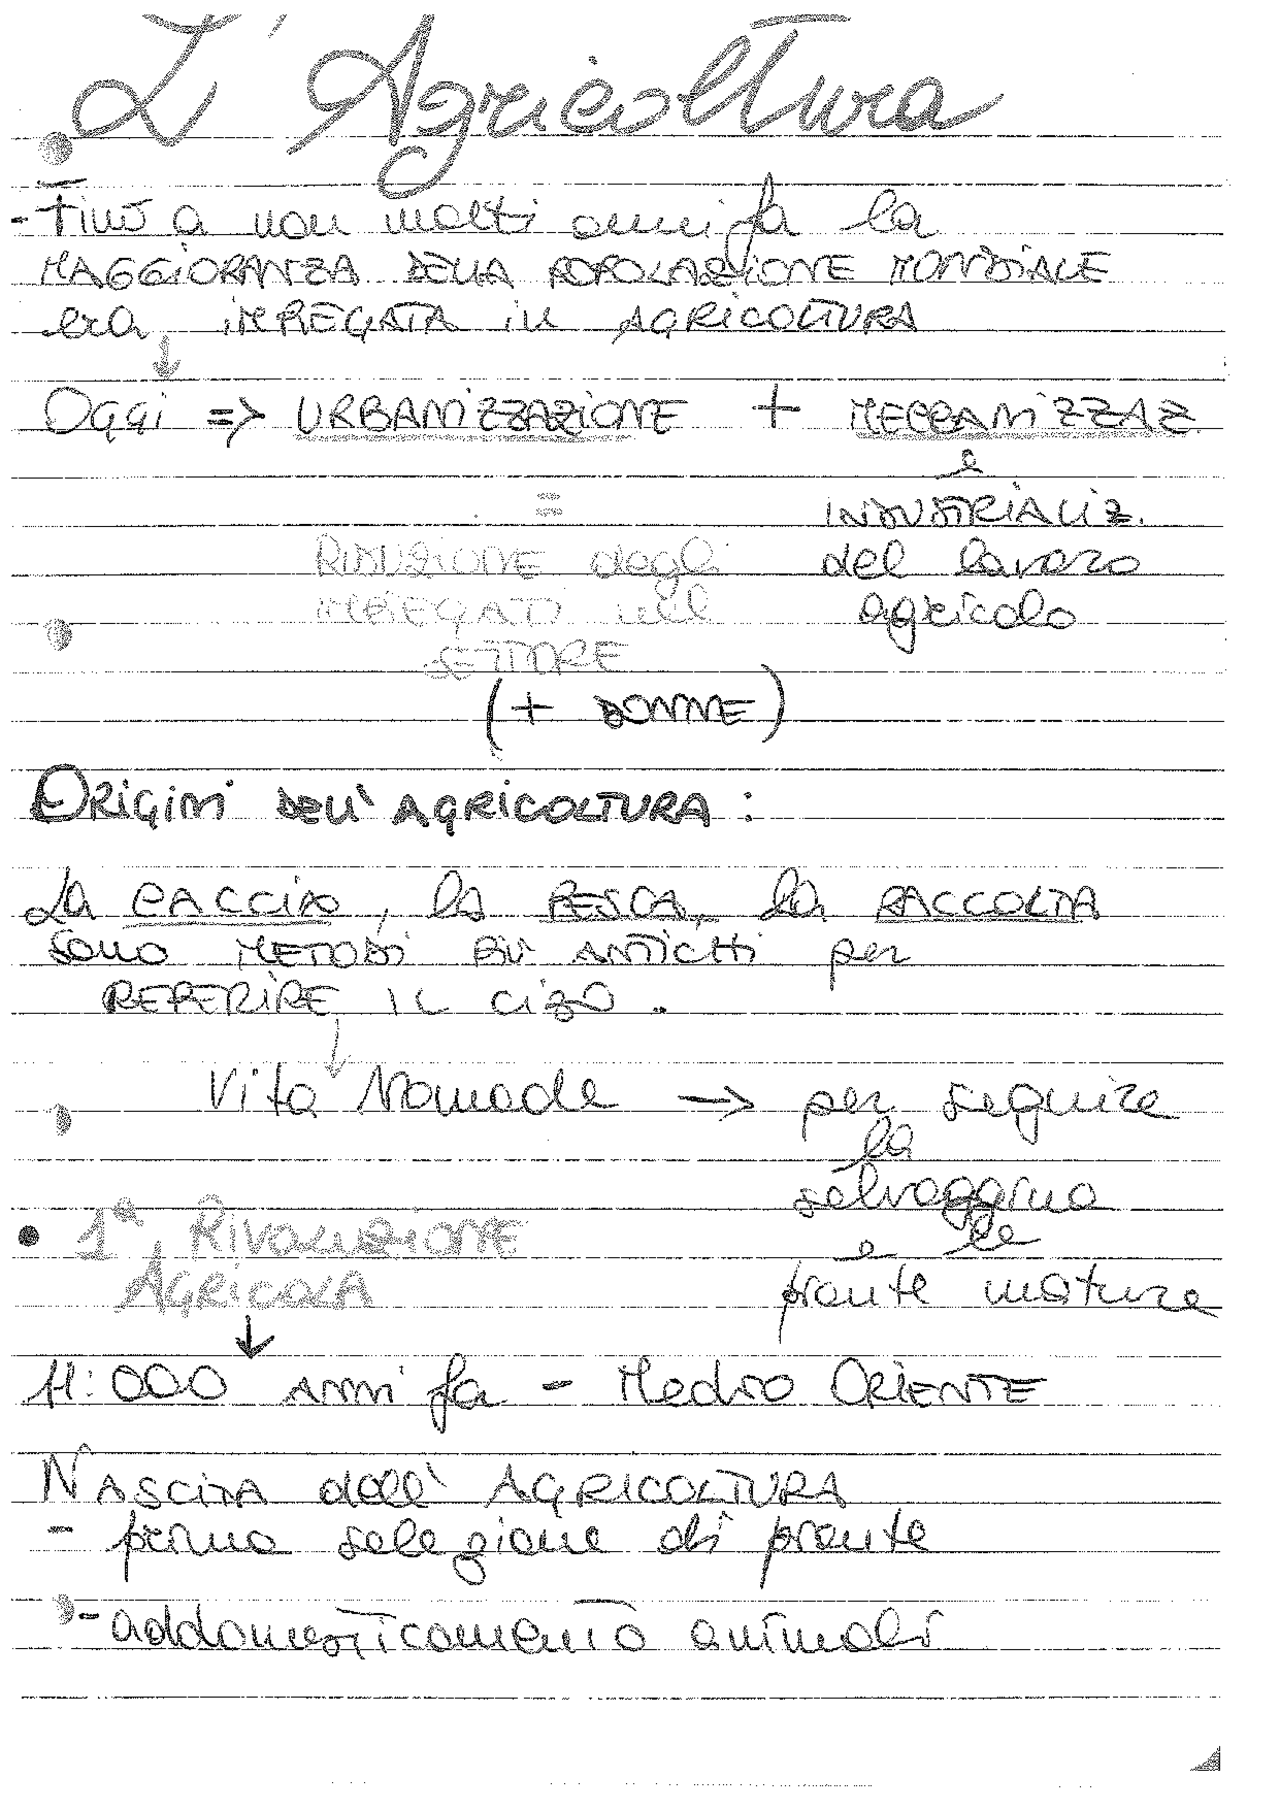 L'Agricoltura
- Fino a non molti anni fa la
MAGGIORANZA DELLA POPOLAZIONE MONDIALE
era IMPIEGATA in AGRICOLTURA
↓
Oggi => URBANIZZAZIONE + MECCANIZZAZ.
e
= INDUSTRIALIZ.
RIDUZIONE degli del lavoro
IMPIEGATI nel agricolo
SETTORE
(+ DONNE)
ORIGINI DELL'AGRICOLTURA:
La CACCIA, la PESCA, la RACCOLTA
sono METODI PIÙ ANTICHI per
REPERIRE IL CIBO.
↓
Vita Nomade → per seguire
la
selvaggina
• 1ª RIVOLUZIONE e le
AGRICOLA piante mature
↓
11:000 ANNI fa - Medio ORIENTE
NASCITA dell'AGRICOLTURA
- prima selezione di piante
- addomesticamento animali